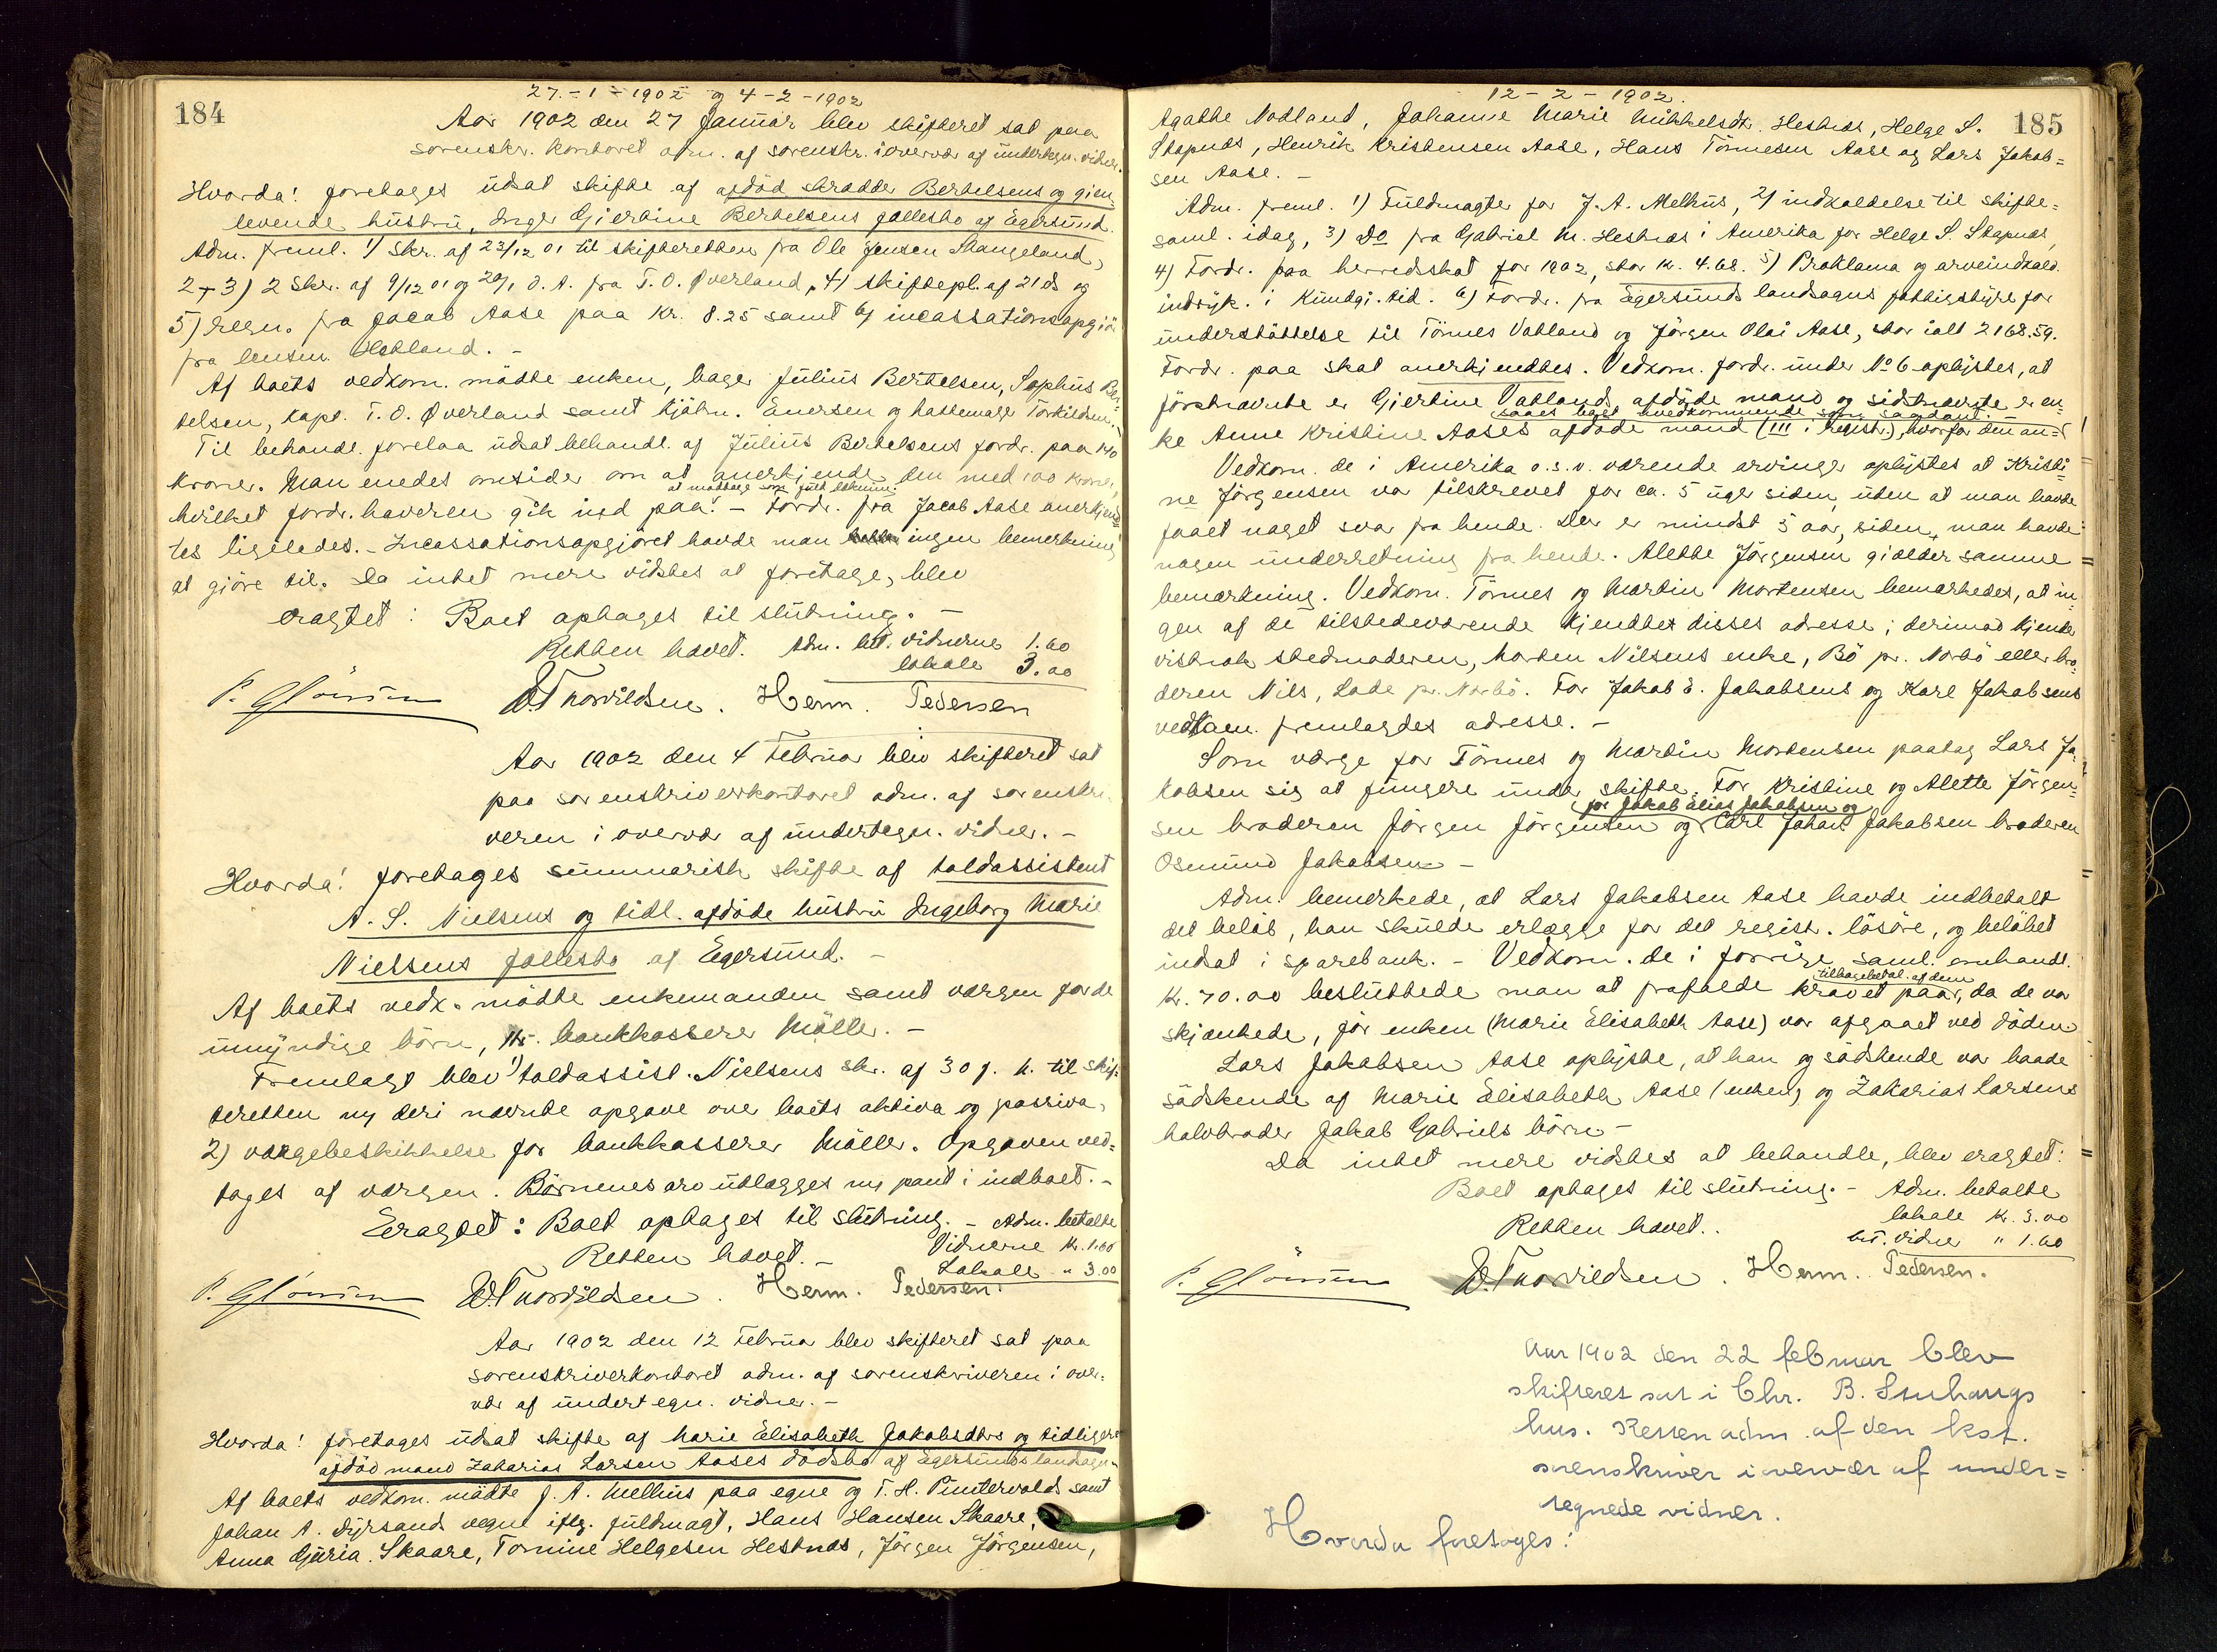 184
27.-1-1902 og 4-2-1902
Aar 1902 den 27 Januar blev skifteret sat paa
sorenskr. kontoret adm. af sorenskr. i overvær af undertegn. vidner.
Hvorda! foretages udsat skifte af afdöd skrædder Bertelsens og gien-
levende hustru, Inger Giertine Bertelsens fællesbo af Egersund.
Adm. freml. 1) Skr. af 23/12 01 til skifteretten fra Ole Jensen Stangeland,
2+3) 2 Skr. af 9/12 01 og 20/1 d. A. fra T. O. Överland, 4) skiftepl. af 21 ds og
5) regn. fra Jacob Aase paa Kr. 8.25 samt 6) incassationsopgjör
fra lensm. Hetland. -
Af boets vedkom. mödte enken, bager Julius Bertelsen, Sophus Ber-
telsen, kapt. T. O. Överland samt kjöbm. Enersen og hattemager Torkildsen.
Til behandl. forelaa udsat behandl. af Julius Bertelsens fordr. paa 140
kroner. Man enedes omsider om at anerkjende den med 100 kroner,
hvilket fordr. haveren gik ind paa at modtage som fuld
! - Fordr. fra Jacob Aase anerkjend-
tes ligeledes. - Incassationsopgjöret havde man ingen bemerkning
at gjöre til. Da intet mere vidstes at foretage, blev
eragtet: Boet optages til slutning. -
Retten hævet. Adm. bet. vidnerne 1.60
lokale 3.00
D. Thorvildsen. Herm. Pedersen
Aar 1902 den 4 Februar blev skifteret sat
paa sorenskriverkontoret adm. af sorenskri-
veren i overvær af undertegn. vidner. -
Hvorda! foretages summarisk skifte af toldassistent
A. S. Nielsens og tidl. afdöde hustru Ingeborg Marie
Nielsens fællesbo af Egersund. -
Af boets vedk. mödte enkemanden samt værgen for de
umyndige börn, hr. bankkasserer Möller. -
Fremlagt blev 1) toldassist. Nielsens skr. af 30 f. M. til skif-
teretten m/ deri nævnte opgave over boets aktiva og passiva,
2) værgebeskikkelse for bankkasserer Möller. Opgaven ved-
toges af værgen. Börnenes arv udlægges m/ pant i indboet. -
Eragtet: Boet optages til slutning. - Adm. betalte
Retten hævet. - Vidnerne Kr. 1.60
Lokale " 3.00
D. Thorvildsen. Herm. Pedersen.
Aar 1902 den 12 Februa blev skifteret sat paa
sorenskriverkontoret adm. af sorenskriveren i over-
vær af undertegn. vidner. -
Hvorda! foretages udsat skifte af Marie Elisabeth Jakobsdtrs og tidligere
afdöd mand Zakarias Larsen Aases dödsbo af Egersunds landsogn.
Af boets vedkom. mödte J. A. Melhus paa egne og T. H. Puntervolds samt
Johan A. Dyrsands vegne iflg. fuldmagt, Hans Hansen Skaare,
Anna Gjuria Skaare, Tomine Helgesen Hestnæs, Jörgen Jörgensen,
185
12-2-1902.
Agathe Nodland, Johanne Marie Mikkelsdtr. Hestnæs, Helge S.
Stapnæs, Henrik Kristensen Aase, Hans Tönnesen Aase og Lars Jakob-
sen Aase. -
Adm. freml. 1) Fuldmagter for J. A. Melhus, 2) indkaldelse til skifte-
saml. idag, 3) Do fra Gabriel M. Hestnæs i Amerika for Helge S. Stapnæs,
4) Fordr. paa herredskat for 1902, stor kr. 4.68. 5) Proklama og arveindkald.
indryk. i Kundgj. tid. 6) Fordr. fra Egersunds landsogns fattigstyre for
understöttelse til Tönnes Vatland og Jörgen Olai Aase, stor ialt 2168.59.
Fordr. paa skat anerkjendtes. Vedkom. fordr. under No 6 oplystes, at
förstnævnte er Giertine Vatlands afdöde mand og sidstnævnte er en-
ke Anne Kristine Aases afdöde mand (III i Regist.), hvorfor den an-
saaes boet uvedkommende som saadant. -
Vedkom. de i Amerika o. s. v. værende arvinger oplystes at Kristi-
ne Jörgensen var tilskrevet for ca. 5 uger siden, uden at man havde
faaet noget svar fra hende. Der er mindst 5 aar siden, man havde
nogen underretning fra hende. Alette Jörgensen gjælder samme
bemærkning. Vedkom. Tönnes og Martin Mortensen bemærkedes, at in-
gen af de tilstedeværende kjendte disses adresse; derimod kjender
vistnok stedmoderen, Morten Nilsens enke, Bö pr. Nærbö eller bro-
deren Nils, Lade pr. Nærbö. For Jakob E. Jakobsens og Karl Jakobsens
vedkom. fremlagdes adresse. -
Som værge for Tönnes og Martin Mortensen paatog Lars Ja-
kobsen sig at fungere under skifte. For Kristine og Alette Jörgen-
sen broderen Jörgen Jörgensen og for Jakob Elias Jakobsen og Carl Johan Jakobsen broderen
Osmund Jakobsen -
Adm. bemerkede, at Lars Jakobsen Aase havde indbetalt
det belöb, han skulde erlægge for det regist. lösöre, og belöbet
indsat i sparebank. - Vedkom. de i forrige saml. omhandl.
Kr. 70.00 besluttede man at frafalde kravet paa tilbagebetal. af dem, da de var
skjænkede, för enken (Marie Elisabeth Aase) var afgaaet ved döden
Lars Jakobsen Aase oplyste, at han og södskende var baade
södskende af Marie Elisabeth Aase (enken) og Zakarias Larsens
halvbroder Jakob Gabriels börn -
Da intet mere vidstes at behandle, blev eragtet:
Boet optages til slutning. - Adm. betalte
Retten hævet. lokale kr. 3.00
bet. vidner " 1.60
D. Thorvildsen. Herm. Pedersen.
Aar 1902 den 22 februar blev
skifteret sat i Chr. B. Stuhaugs
hus. Retten adm. af den kst.
sorenskriver i overvær af under-
tegnede vidner.
Hvorda foretoges: